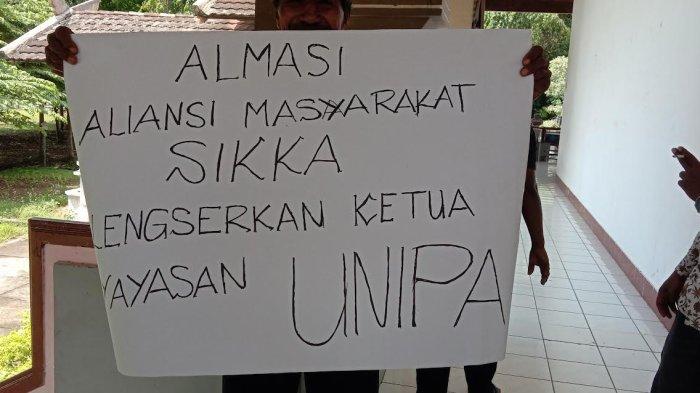 ALMASI
ALIANSI MASYARAKAT
SIKKA
LENGSERKAN KETUA
YAYASAN UNIPA